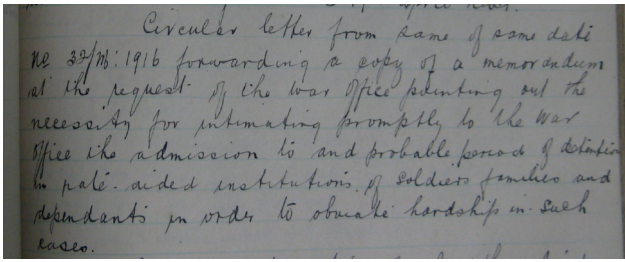 Circular letter from same of same date
No 32/M: 1916 forwarding a copy of a memorandum
at the request of the War Office pointing out the
necessity for intimating promptly to the War
Office the admission to and probable period of detention
in rate-aided institutions of soldiers families and
dependants in order to obviate hardship in such
cases.